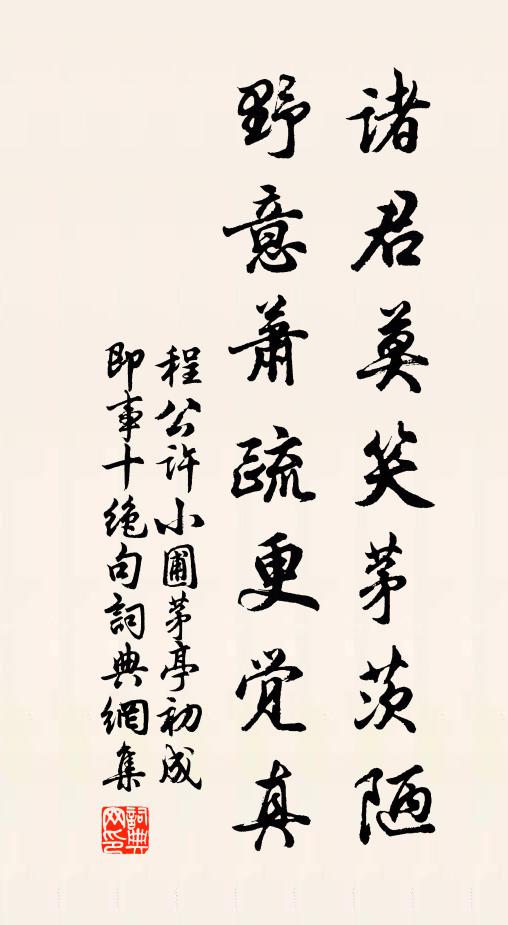 諸君莫笑茅茨陋
野意蕭疏更觉真
程公许小圃茅亭初成
即事十绝句詞典網集
詞典
网印